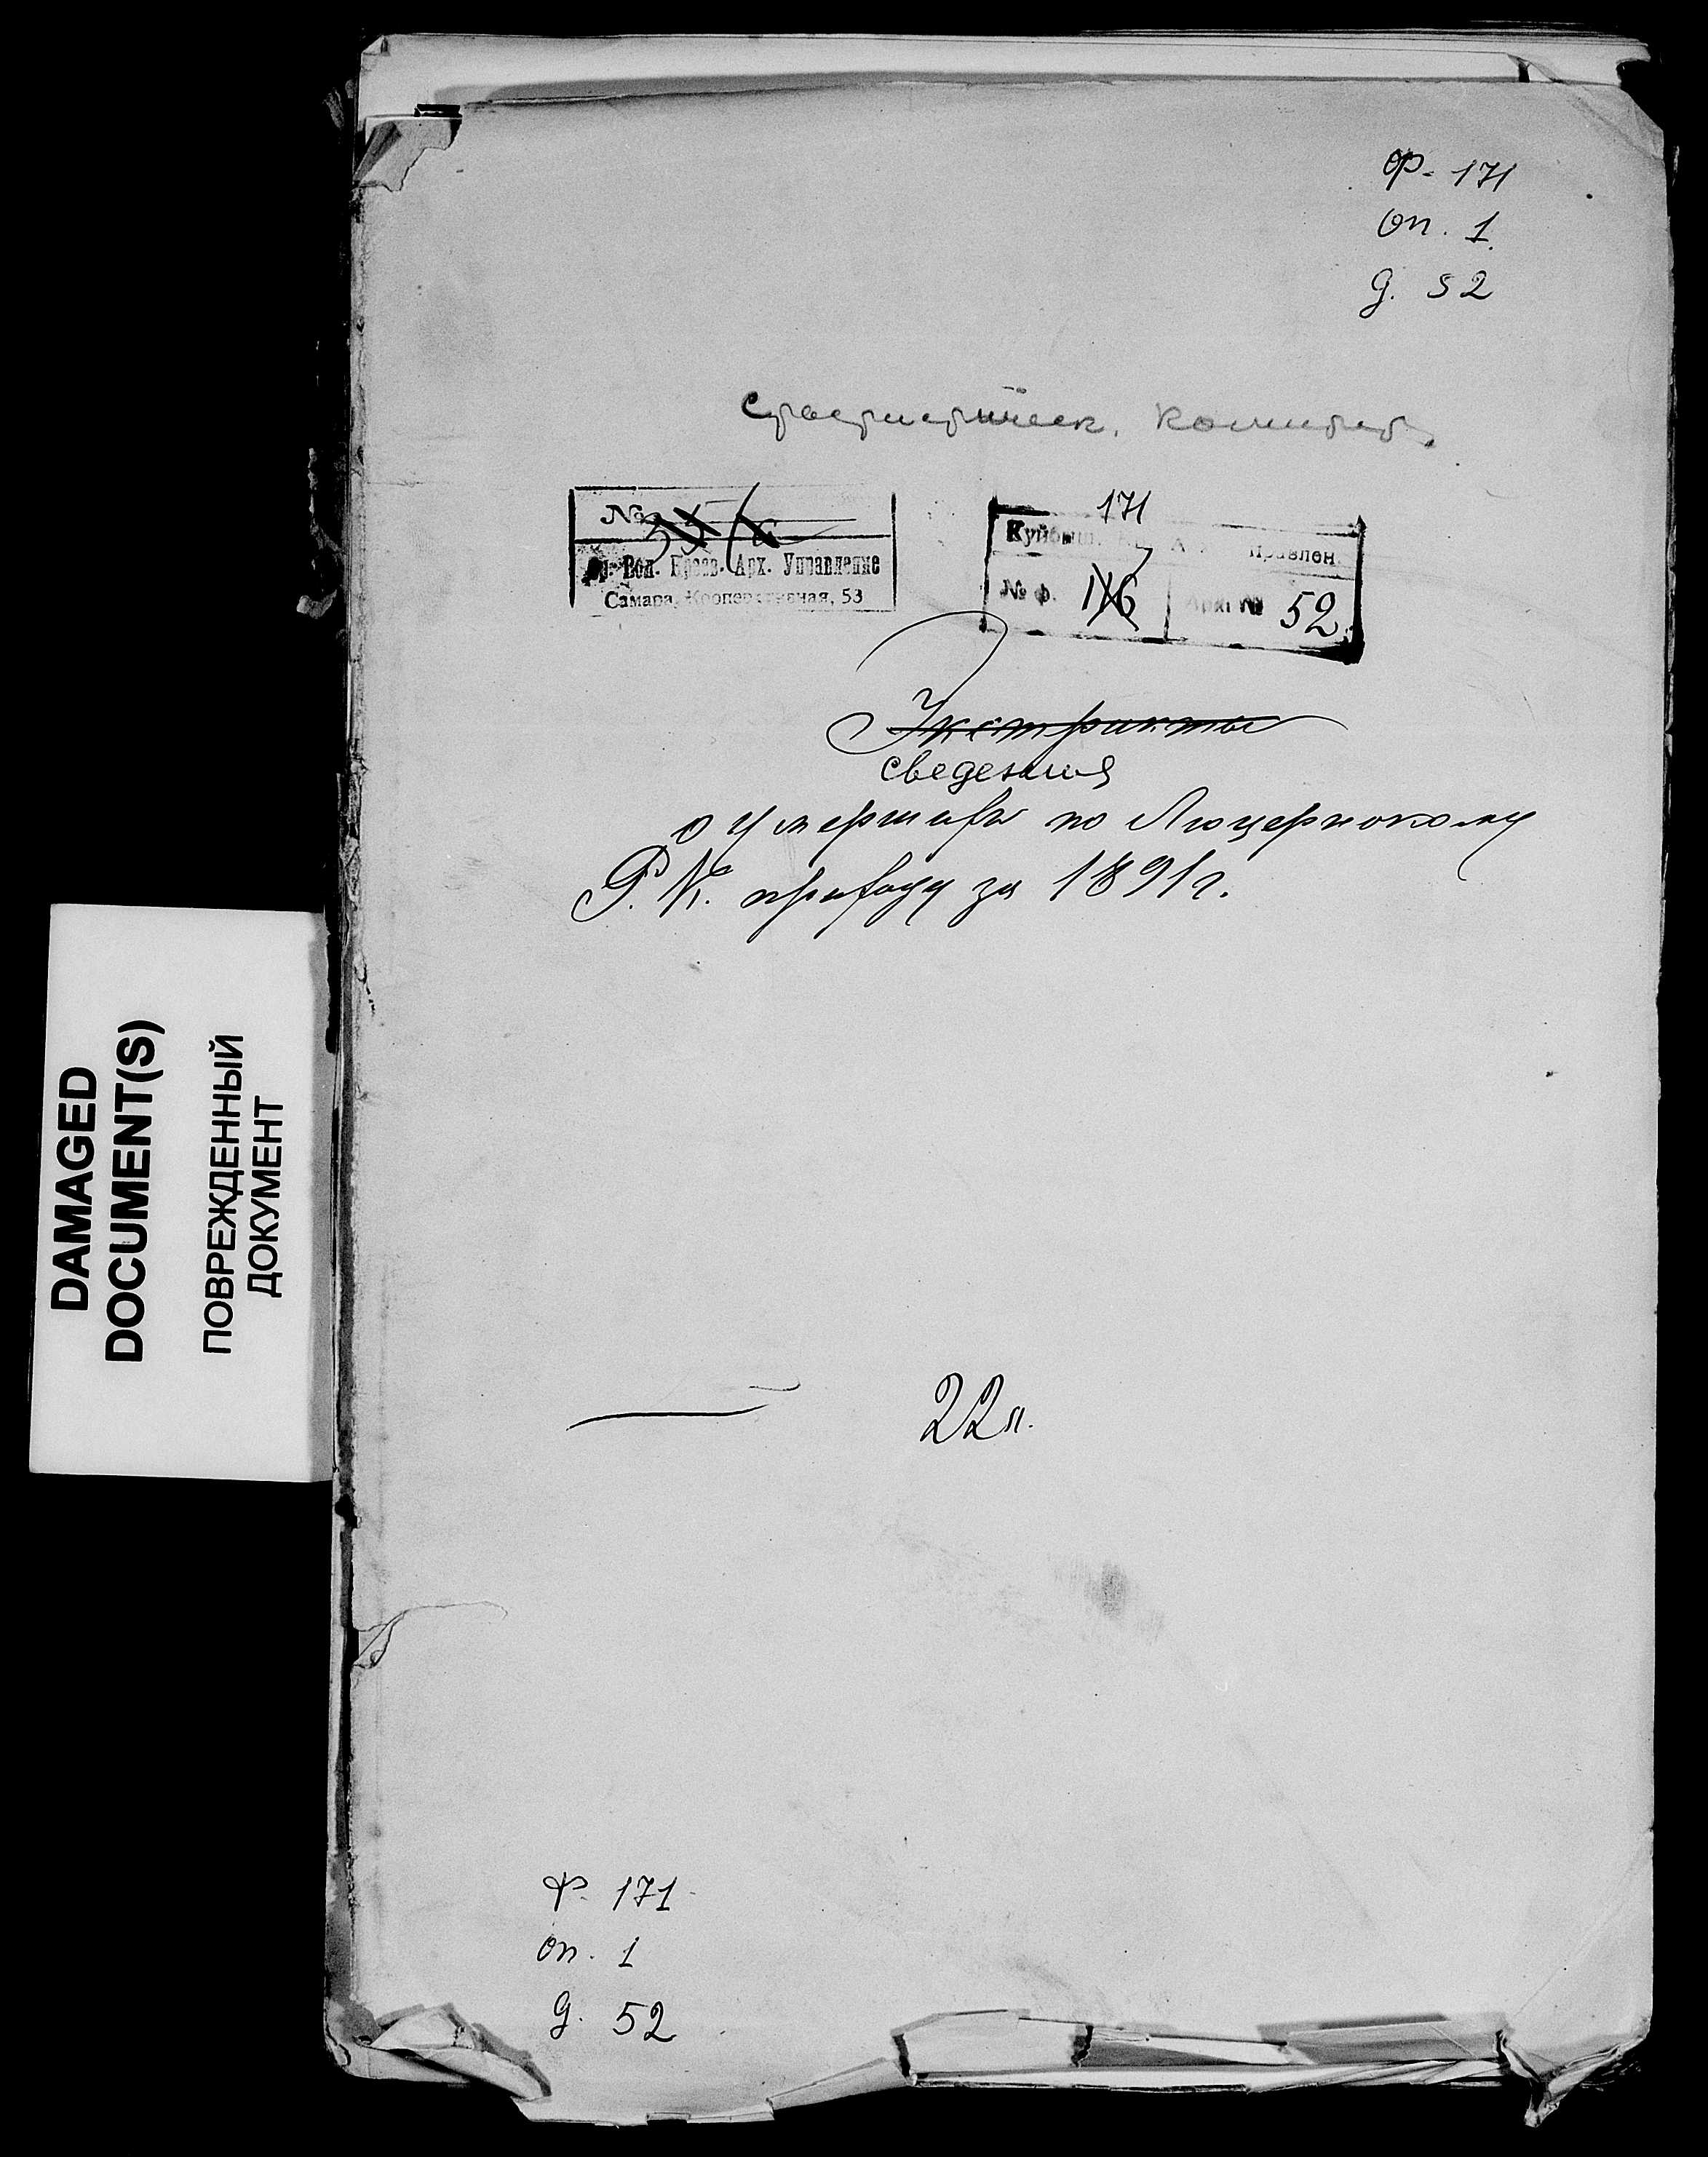 ф. 171
оп. 1
д. 52
Статистическ. Комитет.
№
Ср. Вол. Краев. Арх. Управление
Самара, Кооперативная, 53
171
Куйбыш. Арх. Управлен.
№ ф. 176 Арх. № 52
Экстракты
сведения
о умерших по Люцернскому
Р. К. приходу за 1891 г.
22 л.
ф. 171
оп. 1
д. 52
DAMAGED
DOCUMENT(S)
ПОВРЕЖДЕННЫЙ
ДОКУМЕНТ